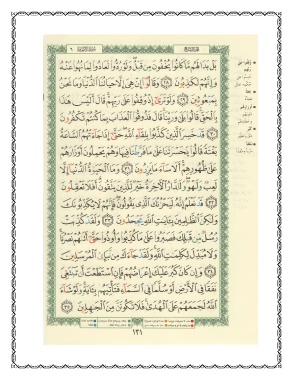 بَلْ بَدَا لَهُم مَّا كَانُوا۟ يُخْفُونَ مِن قَبْلُ وَلَوْ رُدُّوا۟ لَعَادُوا۟ لِمَا نُهُوا۟ عَنْهُ
وَإِنَّهُمْ لَكَٰذِبُونَ ٢٨ وَقَالُوٓا۟ إِنْ هِىَ إِلَّا حَيَاتُنَا ٱلدُّنْيَا وَمَا نَحْنُ
بِمَبْعُوثِينَ ٢٩ وَلَوْ تَرَىٰٓ إِذْ وُقِفُوا۟ عَلَىٰ رَبِّهِمْ قَالَ أَلَيْسَ هَٰذَا
بِٱلْحَقِّ قَالُوا۟ بَلَىٰ وَرَبِّنَا قَالَ فَذُوقُوا۟ ٱلْعَذَابَ بِمَا كُنتُمْ تَكْفُرُونَ
٣٠ قَدْ خَسِرَ ٱلَّذِينَ كَذَّبُوا۟ بِلِقَآءِ ٱللَّهِ حَتَّىٰٓ إِذَا جَآءَتْهُمُ ٱلسَّاعَةُ
بَغْتَةً قَالُوا۟ يَٰحَسْرَتَنَا عَلَىٰ مَا فَرَّطْنَا فِيهَا وَهُمْ يَحْمِلُونَ أَوْزَارَهُمْ
عَلَىٰ ظُهُورِهِمْ أَلَا سَآءَ مَا يَزِرُونَ ٣١ وَمَا ٱلْحَيَوٰةُ ٱلدُّنْيَآ إِلَّا
لَعِبٌ وَلَهْوٌ وَلَلدَّارُ ٱلْـَٔاخِرَةُ خَيْرٌ لِّلَّذِينَ يَتَّقُونَ أَفَلَا تَعْقِلُونَ
٣٢ قَدْ نَعْلَمُ إِنَّهُۥ لَيَحْزُنُكَ ٱلَّذِى يَقُولُونَ فَإِنَّهُمْ لَا يُكَذِّبُونَكَ
وَلَٰكِنَّ ٱلظَّٰلِمِينَ بِـَٔايَٰتِ ٱللَّهِ يَجْحَدُونَ ٣٣ وَلَقَدْ كُذِّبَتْ
رُسُلٌ مِّن قَبْلِكَ فَصَبَرُوا۟ عَلَىٰ مَا كُذِّبُوا۟ وَأُوذُوا۟ حَتَّىٰٓ أَتَىٰهُمْ نَصْرُنَا
وَلَا مُبَدِّلَ لِكَلِمَٰتِ ٱللَّهِ وَلَقَدْ جَآءَكَ مِن نَّبَإِى۟ ٱلْمُرْسَلِينَ
٣٤ وَإِن كَانَ كَبُرَ عَلَيْكَ إِعْرَاضُهُمْ فَإِنِ ٱسْتَطَعْتَ أَن تَبْتَغِىَ
نَفَقًا فِى ٱلْأَرْضِ أَوْ سُلَّمًا فِى ٱلسَّمَآءِ فَتَأْتِيَهُم بِـَٔايَةٍ وَلَوْ شَآءَ
ٱللَّهُ لَجَمَعَهُمْ عَلَى ٱلْهُدَىٰ فَلَا تَكُونَنَّ مِنَ ٱلْجَٰهِلِينَ ٣٥
١٣١